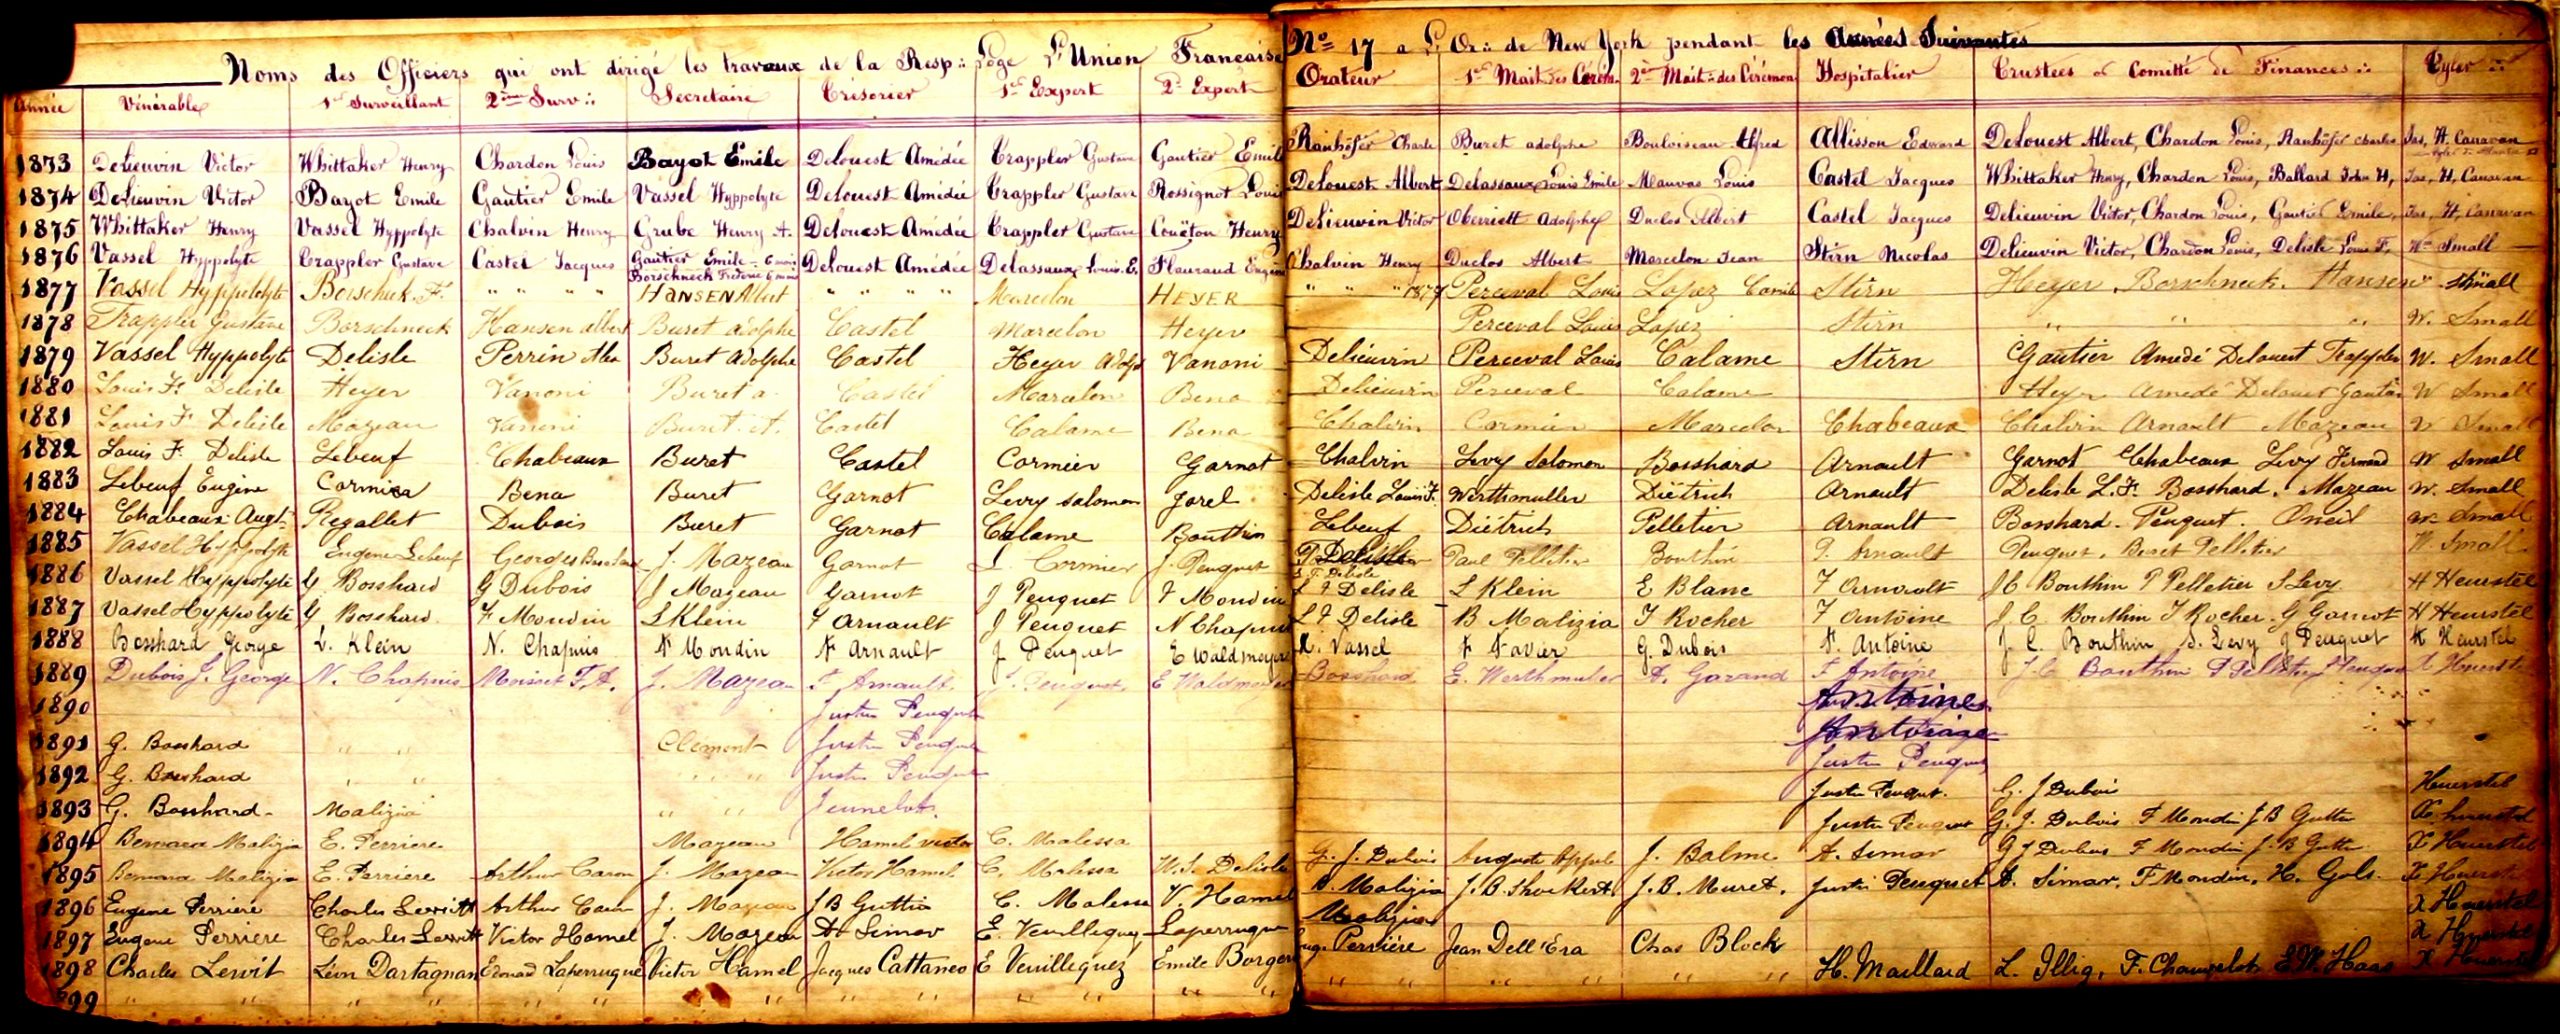 Noms des Officiers qui ont dirigé les travaux de la Resp∴ Loge L'Union Française No 17 a L'Or∴ de New York pendant les Années Suivantes
Année Vénérable 1er Surveillant 2ème Surv∴ Secretaire Trésorier 1er Expert 2e Expert Orateur 1er Mait∴ des Cérém. 2e Mait∴ des Cérémon. Hospitalier Trustees et Comitté de Finances∴ Tyler∴
1873 Delieuvin Victor Whittaker Henry Chardon Louis Bayot Emile Delouest Amédée Trappler Gustave Gautier Emile Ranhöfer Charle Buret adolphe Bouloiseau Alfred Allisson Edward Delouest Albert, Chardon Louis, Ranhöfer Charles Jas. H. Canavan
1874 Delieuvin Victor Bayot Emile Gautier Emile Vassel Hyppolyte Delouest Amédée Trappler Gustave Rossignot Louis Delouest Albert Delassaux Louis Emile Mauvas Louis Castel Jacques Whittaker Henry, Chardon Louis, Ballard John H, Jas, H, Canavan
1875 Whittaker Henry Vassel Hyppolyte Chalvin Henry Grube Henry A. Delouest Amédée Trappler Gustave Couëton Henry Delieuvin Victor Oberriett Adolphe Duclos Albert Castel Jacques Delieuvin Victor, Chardon Louis, Gautier Emile, Jas, H, Canavan
1876 Vassel Hyppolyte Trappler Gustave Castel Jacques Gautier Emile - 6 mois Borschneck Frederic 6 mois Delouest Amédée Delassaux Louis. E. Fleuraud Eugène Chalvin Henry Duclos Albert Marcelon Jean Stirn Nicolas Delieuvin Victor, Chardon Louis, Delisle Louis F, Wm Small
1877 Vassel Hyppolyte Borschneck F. " " " " HANSEN Albert " " " " Marcelon HEYER " " " 1877 Perceval Louis Lopez Camile Stirn Heyer. Borschneck. Hansen W. Small
1878 Trappler Gustave Borschneck Hansen albert Buret adolphe Castel Marcelon Heyer Perceval Louis Lopez Stirn " " " W. Small
1879 Vassel Hyppolyte Delisle Perrin Buret Adolphe Castel Heyer Adolp Vanoni Delieuvin Perceval Louis Calame Stirn Gautier Amedé Delouest Trappler W. Small
1880 Louis F. Delisle Heyer Vanoni Buret a. Castel Marcelon Bena Delieuvin Perceval Calame Heyer Amedé Delouest Gautier W Small
1881 Louis F. Delisle Mazeau Vanoni Buret. A. Castel Calame Bena Chalvin Cormier Marcelon Chabeaux Chalvin Arnault Mazeau W Small
1882 Louis F. Delisle Lebeuf Chabeaux Buret Castel Cormier Garnot Chalvin Levy Salomon Bosshard Arnault Garnot Chabeaux Levy Fernand W Small
1883 Lebeuf Eugène Cormier Bena Buret Garnot Levy salomon Jorel Delisle Louis F. Werthmuller Diétrich Arnault Delisle L. F. Bosshard. Mazeau W. Small
1884 Chabeaux Augt Regallet Dubois Buret Garnot Calame Bouthin Lebeuf Diétrich Pelletier Arnault Bosshard. Peuquet. Oneil W. Small
1885 Vassel Hyppolyte Eugene Lebeuf Georges Bosshard J. Mazeau Garnot L. Cormier J. Peuquet L. F. Delisle Paul Pelletier Bouthin F. Arnault Peuquet. Buret Pelletier W. Small
1886 Vassel Hyppolyte G Bosshard G Dubois J Mazeau Garnot J Peuquet F Mondin L F Delisle L Klein E Blanc F Arnault J C Bouthin P Pelletier S Levy H Heurstel
1887 Vassel Hyppolyte G Bosshard. F Mondin L Klein F Arnault J Peuquet N Chapuis L F Delisle B Malizia F Rocher F Antoine J. C. Bouthin F Rocher. G Garnot H Heurstel
1888 Bosshard George L. Klein N. Chapuis F Mondin F Arnault J Peuquet E Waldmeyer H. Vassel F Favier G. Dubois F. Antoine J. C. Bouthin S. Levy J Peuquet H Heurstel
1889 Dubois J. George N. Chapuis Moisset F. A. J. Mazeau F. Arnault. J. Peuquet. E Waldmeyer Bosshard E. Werthmuller A. Garand F Antoine J. C Bouthin P Pelletier Peuquet X Heurstel
1890 Justin Peuquet Antoine
1891 G. Bosshard " " Clement Justin Peuquet Antoine
1892 G. Bosshard " " " " Justin Peuquet Justin Peuquet
1893 G. Bosshard - Malizia " " Jeunelot. Justin Peuquet. G. J Dubois Heurstel
1894 Bernard Malizia E. Perriere Mazeau Hamel victor C. Malessa Justin Peuquet G. J. Dubois F Mondin J B Guttin X Heurstel
1895 Bernard Malizia E. Perriere Arthur Caron J. Mazeau Victor Hamel C. Malessa W. F. Delisle G. J. Dubois Auguste Appel J. Balme A. Simar G J Dubois F Mondin J. B Guttin X Heurstel
1896 Eugene Perriere Charles Lewitt Arthur Caron J. Mazeau J B Guttin C. Malessa V. Hamel B. Malizia J. B. J. B. Muret. Justin Peuquet A. Simar, F Mondin, H. Gols. X Heurstel
1897 Eugene Perriere Charles Lewitt Victor Hamel J. Mazeau A. Simar E. Veuillequez Laperruque Malizia X Heurstel
1898 Charles Lewit Léon Dartagnan Edouard Laperruque Victor Hamel Jacques Cattaneo E Veuillequez Emile Borger Eug. Perriére Jean Dell'Era Chas Block H. Maillard L. Illig, F. Chauvelot E. W. Haas X Heurstel
899 " " " " " " " " " " " " " " " " " " " "